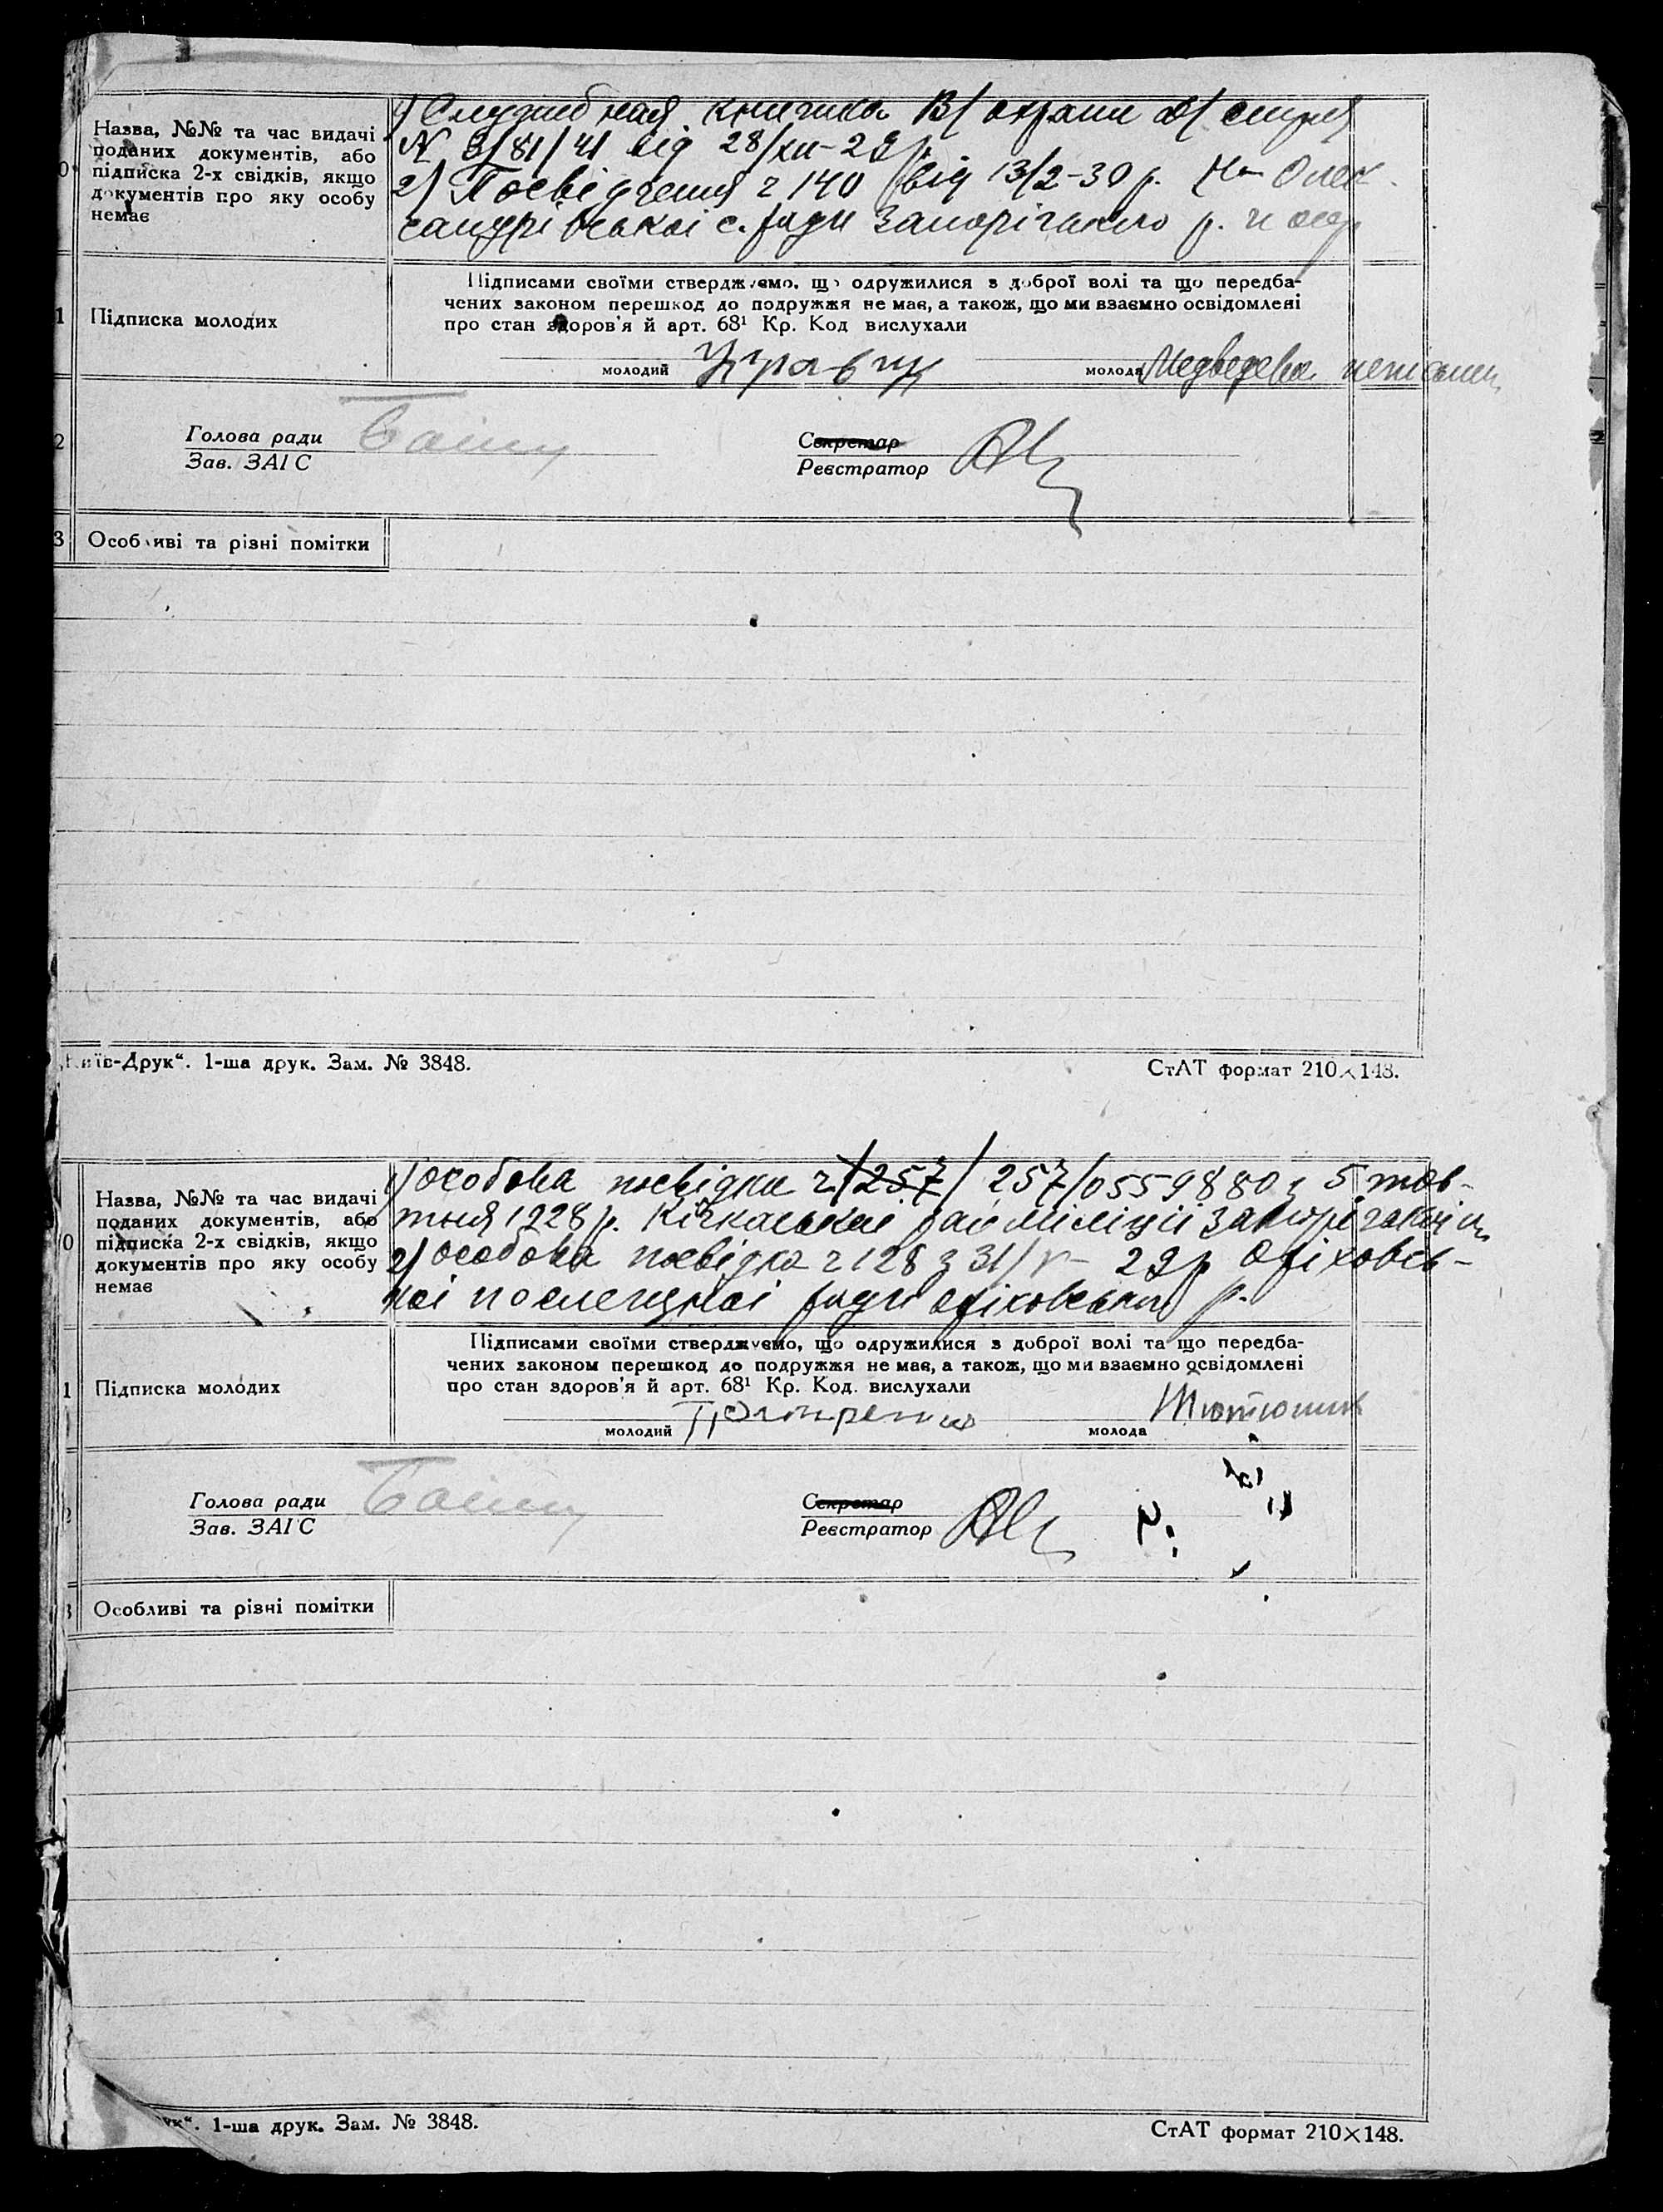 1) Служебная книжка В/ охраны
Назва, №№ та час видачі
поданих документів, або
підписка 2-х свідків, якщо
документів про яку особу
немає
N 3/81/41 від 28/XII-29 р.
2) Посвідчення ч 140 від 13/2-30 р. Олек-
сандрівської с. ради Запорізького р.
0
Підписами своїми стверджуємо, що одружилися з доброї волі та що передба-
чених законом перешкод до подружжя не має, а також, що ми взаємно освідомлені
про стан здоров'я й арт. 68¹ Кр. Код вислухали
1 Підписка молодих
молодий молода Медведева
2
Голова ради
Зав. ЗАГС
Секретар
Реєстратор
3 Особливі та різні помітки
„Київ-Друк“. 1-ша друк. Зам. № 3848. СтАТ формат 210×148.
1) особова посвідка ч /257/ 257/0559880 з 5 жов-
Назва, №№ та час видачі
поданих документів, або
підписка 2-х свідків, якщо
документів про яку особу
немає
тня 1928 р. Кічкаської рай міліції
2) особова посвідка ч 128 з 31/V- 29 р Оріховсь-
кої селищної ради Оріховського р.
0
Підписами своїми стверджуємо, що одружилися з доброї волі та що передба-
чених законом перешкод до подружжя не має, а також, що ми взаємно освідомлені
про стан здоров'я й арт. 68¹ Кр. Код. вислухали
1 Підписка молодих
молодий молода Тютюник
Голова ради
Зав. ЗАГС
Секретар
Реєстратор
Особливі та різні помітки
1-ша друк. Зам. № 3848. СтАТ формат 210×148.